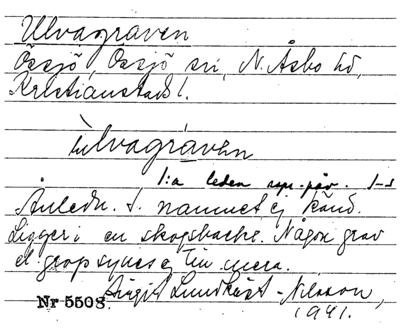 Ulvagraven
Össjö, Össjö sn, N. Åsbo hd,
Kristianstads l.
ulvagraven
1:a leden
Anledn. t. namnet ej känd.
Ligger i en skogsbacke. Någon grav
el. grop synes ej till mera.
Birgit Lundkvist-Nilsson,
1941.
Nr 5508